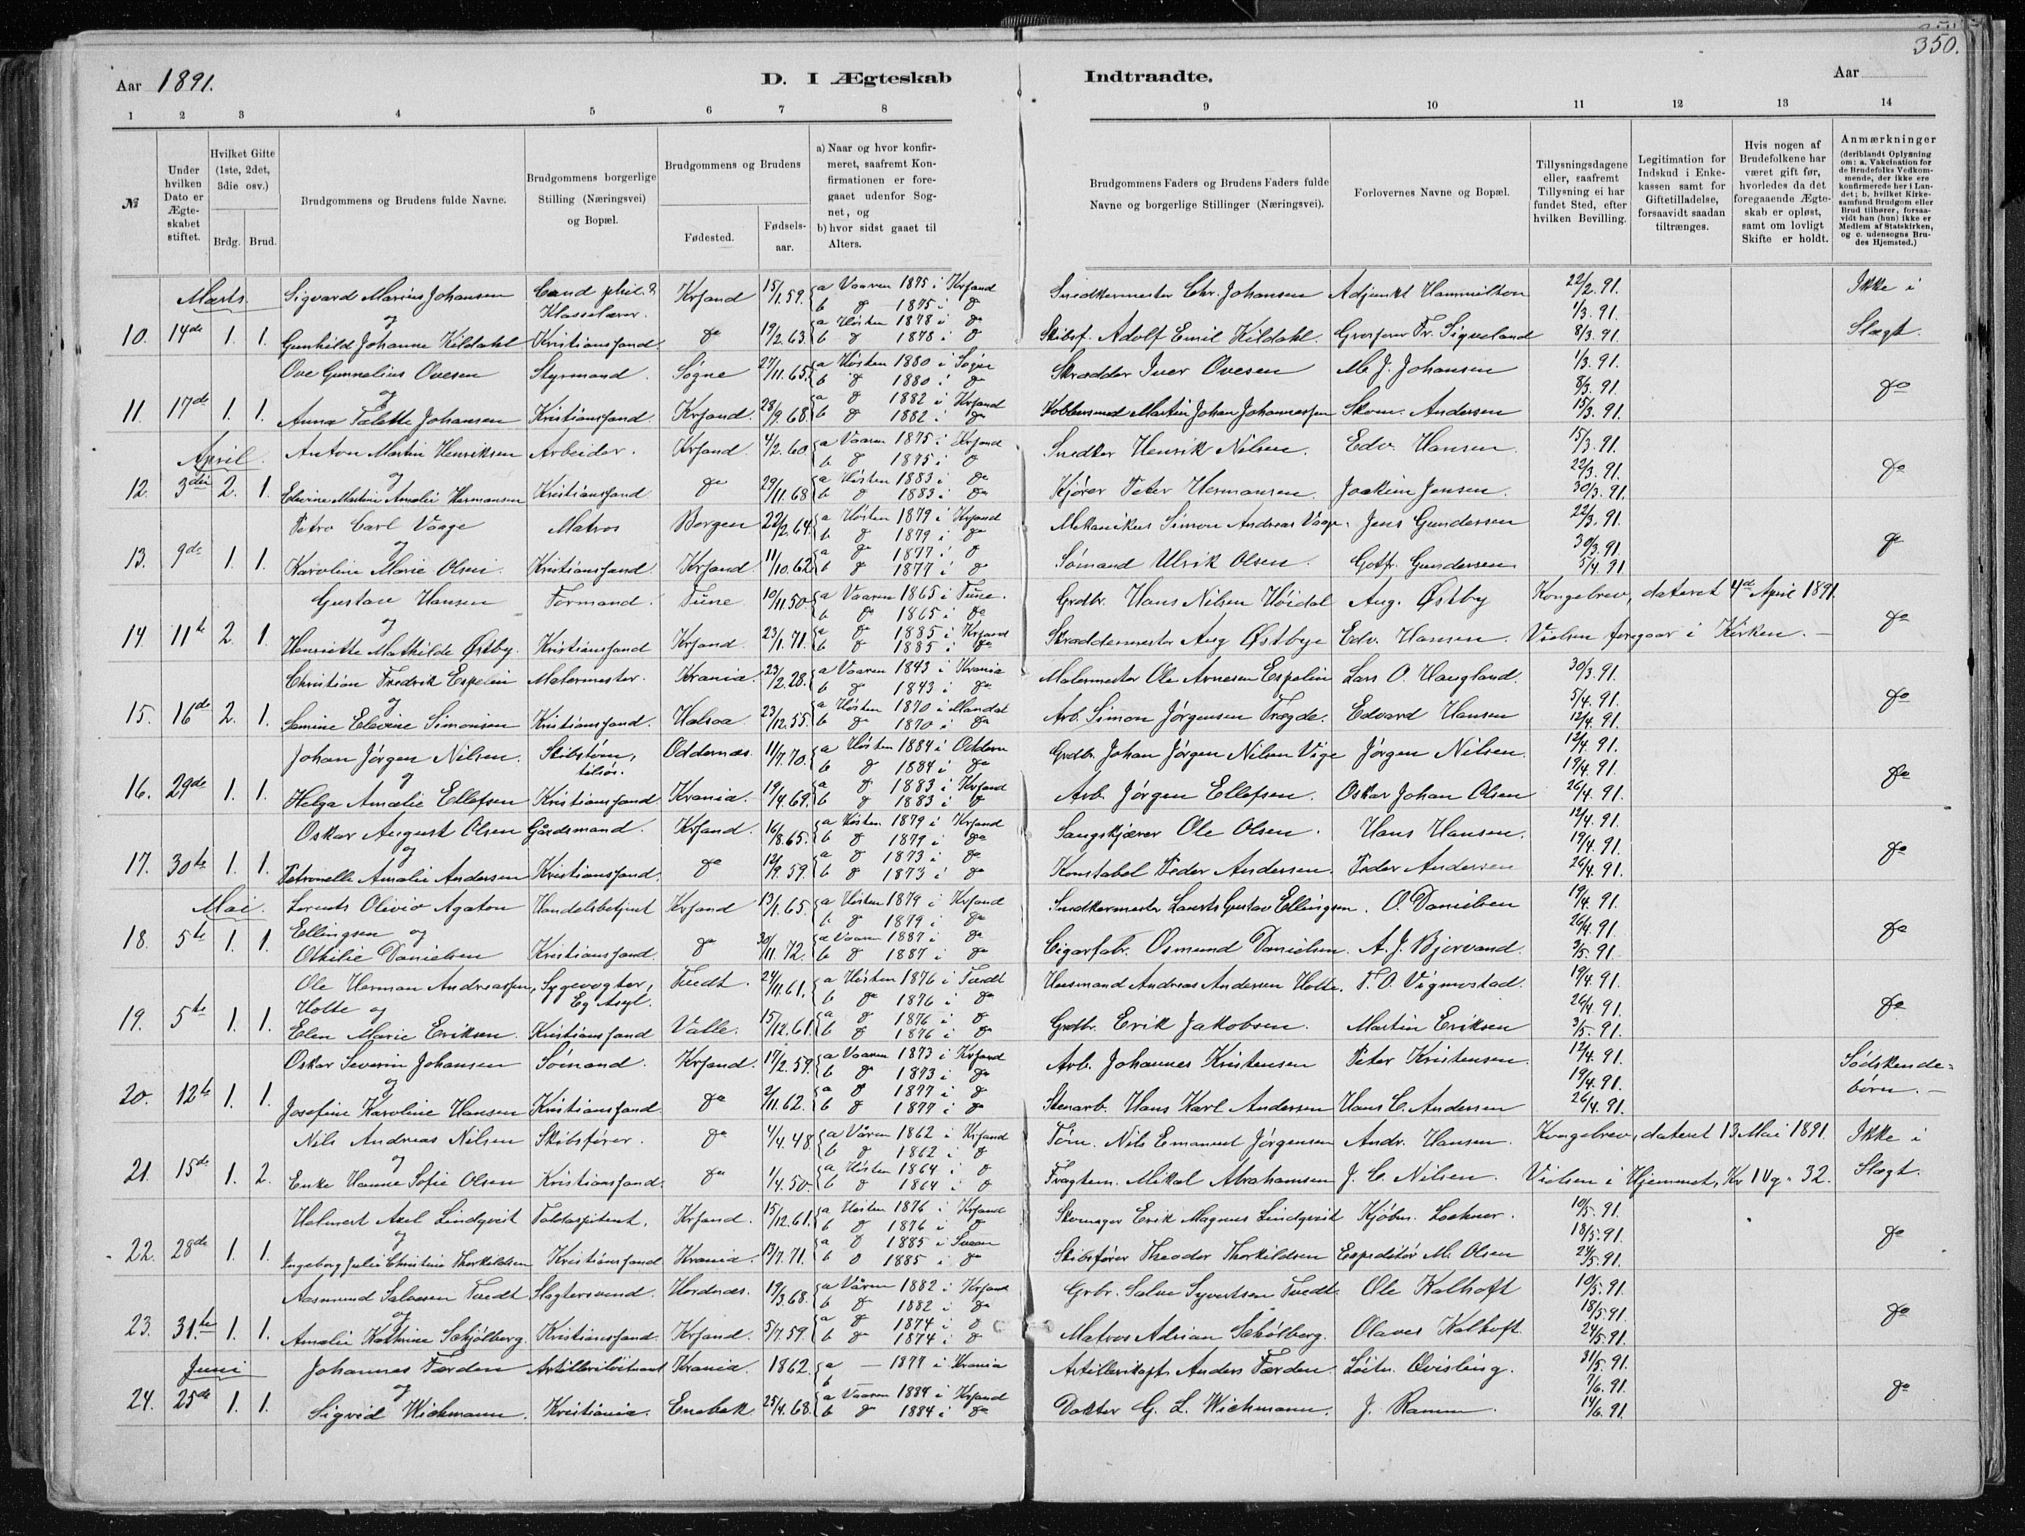 350.
Aar 1891. D. I Ægteskab Indtraadte. Aar
1 2 3 4 5 6 7 8 9 10 11 12 13 14
№
Under hvilken Dato er Ægteskabet stiftet.
Hvilket Gifte (1ste, 2det, 3die osv.)
Brdg. Brud.
Brudgommens og Brudens fulde Navne.
Brudgommens borgerlige Stilling (Næringsvei) og Bopæl.
Brudgommens og Brudens
Fødested. Fødselsaar.
a) Naar og hvor konfirmeret, saafremt Konfirmationen er foregaaet udenfor Sognet, og
b) hvor sidst gaaet til Alters.
Brudgommens Faders og Brudens Faders fulde Navne og borgerlige Stillinger (Næringsvei).
Forlovernes Navne og Bopæl.
Tillysningsdagene eller, saafremt Tillysning ei har fundet Sted, efter hvilken Bevilling.
Legitimation for Indskud i Enkekassen samt for Giftetilladelse, forsaavidt saadan tiltrænges.
Hvis nogen af Brudefolkene har været gift før, hvorledes da det foregaaende Ægteskab er opløst, samt om lovligt Skifte er holdt.
Anmærkninger (deriblandt Oplysning om: a. Vakcination for de Brudefolks Vedkommende, der ikke ere konfirmerede her i Landet; b. hvilket Kirkesamfund Brudgom eller Brud tilhører, forsaavidt han (hun) ikke er Medlem af Statskirken, og c. udensogns Brudes Hjemsted.)
Marts. Sigvard Marius Johansen Cand phil. & Klasselærer. Krsand 15/1.59. a Vaaren 1875 i Krsand b d 1875 i d Snedkermester Chr. Johansen Adjunkt Hammilton 22/2.91. Ikke i
og 1/3.91.
10. 14de 1. 1. Gunhild Johanne Kildahl Kristianssand. do 19/2.63. a Høsten 1878 i do b d 1878 i d Skibsf. Adolf Emil Kildahl. Grosserer Fr. Sigveland 8/3.91. Slægt.
Ove Gunnelius Ovesen Styrmand. Sogne 27/11.65. a Høsten 1880 i Sogne b d 1880 i do Skrædder Iver Ovesen M. J. Johansen 1/3.91.
og 8/3.91. do
11. 17de 1. 1. Anna Talette Johansen Kristianssand. Krsand. 28/9.68. a d 1882 i Krsand b d 1882 i do Kobbersmed Martin Johan Johannessen Skom. Andersen 15/3.91.
April. Anton Martin Henriksen Arbeider. Krsand 4/2.60. a Vaaren 1875 i Krsand b d 1875 i d Snedker Henrik Nilsen. Edv. Hansen. 15/3.91.
og 22/3.91. do
12. 3die 2. 1. Elevine Martine Amalie Hermansen Kristianssand do 29/11.68 a Høsten 1883 i do b d 1883 i do Kjører Peter Hermansen. Joakim Jensen. 30/3.91.
Petro Carl Vaage Matros Bergen 22/2.64. a Høsten 1879 i Krsand b d 1879 i do Mekanikus Simon Andreas Vaage. Jens Gundersen 22/3.91.
og 30/3.91. do
13. 9de 1. 1. Karoline Marie Olsen. Kristianssand Krsand. 11/10.62. a do 1877 i d b d 1877 i do Sømand Ulrik Olsen. Gotfr. Gundersen 5/4.91
Gustav Hansen Formand. Tune. 10/11.50. a Vaaren 1865 i Tune. b d 1865 i do Grdbr. Hans Nilsen Höidal Aug. Østby Kongebrev, dateret 4de April 1891.
og do
14. 11te 2. 1. Henriette Mathilde Østby. Kristianssand Krsand. 23/1.71. a do 1885 i Krsand b d 1885 i do Skræddermester Aug Østbye Edv. Hansen. Vielsen foregaar i Kirken. —
Christian Fredrik Espelin Malermester. Krania. 23/2.28. a Vaaren 1843 i Krania b d 1843 i do Malermester Ole Arnesen Espelin Lars O. Haugland. 30/3.91.
og 5/4.91. do
15. 16de 2. 1. Semine Elevine Simonsen Kristianssand. Halsaa. 23/12.55. a Høsten 1870 i Mandal b d 1870 i do Arb. Simon Jørgensen Trægde. Edvard Hansen 12/4.91.
Johan Jørgen Nilsen. Skibstøm, Oddernæs. 11/7.70. a Høsten 1884 i Oddern b d 1884 i do Grdbr. Johan Jørgen Nilsen Vige Jørgen Nilsen. 12/4.91.
og 19/4.91. do
16. 29de 1. 1. Helga Amalie Ellefsen Kristianssand Krania. 19/4.69. a d 1883 i Krsand b d 1883 i d Arb. Jörgen Ellefsen. Oskar Johan Olsen 26/4.91.
Oskar August Olsen Gårdsmand. Krsand. 16/8.65. a Høsten 1879 i Krsand b d 1879 i do Saugskjærer Ole Olsen. Hans Hansen. 12/4.91.
og 19/4.91. do
17. 30te 1. 1. Petronelle Amalie Andersen Kristianssand. do 12/9.59. a d 1873 i do b d 1873 i do Konstabel Peder Andersen. Peder Andersen 26/4.91.
Mai. Lorents Olivio Agaton Handelsbetjent Krsand 13/1.65. a Høsten 1879 i Krsand b d 1879 i do Snedkermester Laurts Gustav Ellingsen. O. Danielsen 19/4.91.
Ellingsen og 26/4.91. do
18. 5te 1. 1. Othilie Danielsen Kristianssand. do 30/11.72. a Vaaren 1887 i do b d 1887 i do Cigarfabr. Osmund Danielsen. A. J. Bjorvand. 3/5.91.
Ole Herman Andreassen, Sygevogter, Eg Asyl. Tvedt. 24/11.61. a Høsten 1876 i Tvedt b do 1876 i do Husmand Andreas Andersen Holte. T. O. Vigmostad. 19/4.91.
Holte og 26/4.91. do
19. 5te 1. 1. Elen Marie Eriksen. Kristianssand Valle. 15/12.61. a d 1876 i do b d 1876 i do Grdbr. Erik Jakobsen. Martin Eriksen 3/5.91.
Oskar Severin Johansen Sømand. Krsand. 17/2.59. a Vaaren 1873 i Krsand b d 1873 i do Arb. Johannes Kristensen Peter Kristensen. 12/4.91. Sødskende-
og 19/4.91. børn. —
20. 12te 1. 1. Josefine Karoline Hansen Kristianssand. do 2/11.62. a d 1877 i d b d 1877 i do Stenarb. Hans Karl Andersen Hans C. Andersen 26/4.91.
Nils Andreas Nilsen Skibsfører. do 4/4.48. a Våren 1862 i Krsand b d 1862 i do Tøm. Nils Emanuel Jørgensen Andr. Hansen. Kongebrev, dateret 13 Mai 1891. Ikke i
og
21. 15de 1. 2. Enke Hanne Sofie Olsen Kristianssand. do 1/4.50. a Høsten 1864 i d b d 1864 i d Fragtem. Mikal Abrahamsen J. C. Nilsen. Vielsen i Hjemmet, Kr 1 Vg. 32. Slægt.
Helmert Axel Lindqvist Toldaspirent. Krsand. 15/12.61. a Høsten 1876 i Krsand b d 1876 i do Skomager Erik Magnus Lindqvist Kjøbm. Lochner. 10/5.91.
og 18/5.91. do
22. 28de 1. 1. Ingeborg Julie Christine Thorkildsen Kristianssand Krania. 13/7.71. a d 1885 i b d 1885 i do Skibsfører Theodor Thorkildsen Expeditør M. Olsen 24/5.91.
Aasmund Salvesen Tvedt Slagtersvend. Hordnæs. 19/3.68. a Våren 1882 i Krsand b do 1882 i do Grbr. Salve Syvertsen Tvedt Ole Kalhoft 10/5.91.
og 18/5.91. do
23. 31te 1. 1. Amalie Kathrine Schjølberg. Kristianssand. Krsand. 5/7.59. a do 1874 i d b do 1874 i d Matros Adrian Schølberg. Olaves Kalhoft. 24/5.91.
Juni Johannes Færden Artilleriløitnant Krania. 1862. a — 1877 i Krania b Artillerikapt Anders Færden. Löitn. Qvisling. 31/5.91.
og 7/6.91. do
24. 25de 1. 1. Sigrid Wichmann. Kristiania. Enebak 25/4.68. a Vaaren 1884 i Krsand b do 1884 i do Doktor G. L. Wichmann. J. Ramm. 14/6.91.